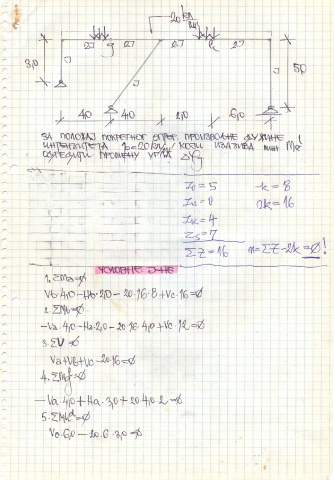 20 kN/m
2J
g
2J
2J
k
2J
3,0
J
J
5,0
4,0
4,0
2,0
6,0
ЗА ПОЛОЖАЈ ПОКРЕТНОГ ОПТЕР. ПРОИЗВОЉНЕ ДУЖИНЕ
ИНТЕНЗИТЕТА p=20 kN/m КОЈИ ИЗАЗИВА min
ОДРЕДИТИ ПРОМЕНУ УГЛА
Zo = 5
k = 8
Zu = 0
2k = 16
Zk = 4
Zs = 7
ΣZ = 16
n = ΣZ - 2k = 0!
УСЛОВНЕ Ј-НЕ
1. ΣMa = 0
Vb·4,0 - Hb·2,0 - 20·16·8 + Vc·16 = 0
2. ΣMb = 0
-Va·4,0 - Ha·2,0 - 20·16·4,0 + Vc·12 = 0
3. ΣV = 0
Va + Vb + Vc - 20·16 = 0
4. ΣMg = 0
-Va·4,0 + Ha·3,0 + 20·4,0·2 = 0
5. ΣMk = 0
Vc·6,0 - 20·6·3,0 = 0